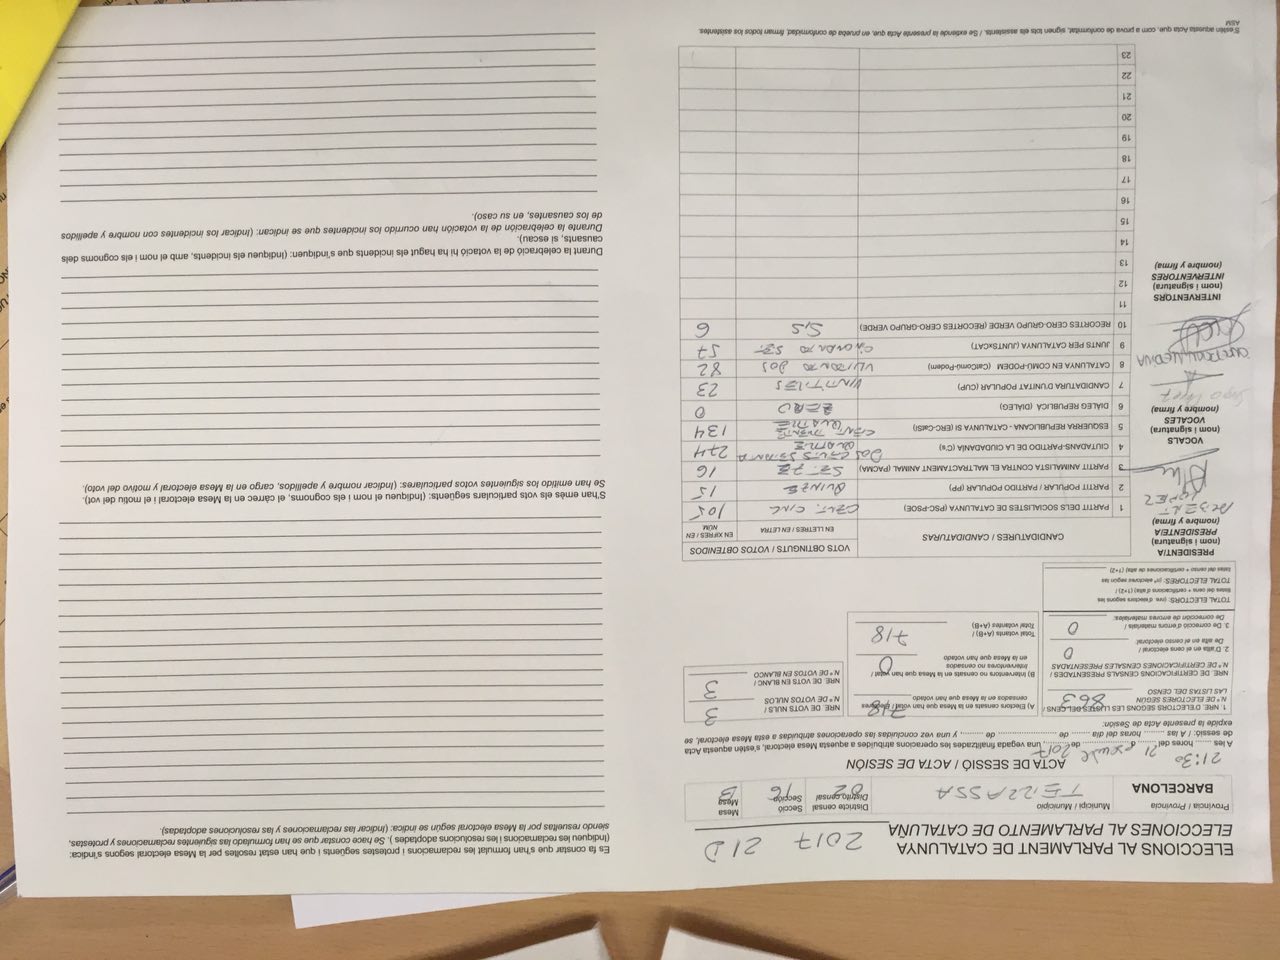 ELECCIONS AL PARLAMENT DE CATALUNYA
ELECCIONES AL PARLAMENTO DE CATALUÑA
2017 21D
Província / Provincia
BARCELONA
Municipi / Municipio
TERRASSA
Districte censal
Distrito censal
02
Secció
Sección
16
Mesa
Mesa
B
ACTA DE SESSIÓ / ACTA DE SESIÓN
21:30 21 2017
A les ........ hores del ........ d ........ de ........, una vegada finalitzades les operacions atribuïdes a aquesta Mesa electoral, s'estén aquesta Acta
de sessió: / A las ........ horas del día ........ de ........ de ........, y una vez concluidas las operaciones atribuidas a esta Mesa electoral, se
expide la presente Acta de Sesión:
1. NRE. D'ELECTORS SEGONS LES LLISTES DEL CENS /
N.º DE ELECTORES SEGÚN
LAS LISTAS DEL CENSO
863
NRE. DE CERTIFICACIONS CENSALS PRESENTADES /
N.º DE CERTIFICACIONES CENSALES PRESENTADAS
2. D'alta en el cens electoral /
De alta en el censo electoral:
0
3. De correcció d'errors materials /
De corrección de errores materiales:
0
TOTAL ELECTORS: (nre. d'electors segons les
llistes del cens + certificacions d'alta) (1+2) /
TOTAL ELECTORES: (nº electores según las
listas del censo + certificaciones de alta) (1+2)
A) Electors censats en la Mesa que han votat / Electores
censados en la Mesa que han votado
718
B) Interventors no censats en la Mesa que han votat /
Interventores no censados
en la Mesa que han votado
0
Total votants (A+B) /
Total votantes (A+B)
718
NRE. DE VOTS NULS /
N.º DE VOTOS NULOS
3
NRE. DE VOTS EN BLANC /
N.º DE VOTOS EN BLANCO
3
PRESIDENT/A
(nom i signatura)
PRESIDENTE/A
(nombre y firma)
ALBERT
LOPEZ
VOCALS
(nom i signatura)
VOCALES
(nombre y firma)
MEDINA
INTERVENTORS
(nom i signatura)
INTERVENTORES
(nombre y firma)
CANDIDATURES / CANDIDATURAS
VOTS OBTINGUTS / VOTOS OBTENIDOS
EN LLETRES / EN LETRA
EN XIFRES / EN NÚM
1 PARTIT DELS SOCIALISTES DE CATALUNYA (PSC-PSOE) CENT CINC 105
2 PARTIT POPULAR / PARTIDO POPULAR (PP) QUINZE 15
3 PARTIT ANIMALISTA CONTRA EL MALTRACTAMENT ANIMAL (PACMA) SETZE 16
4 CIUTADANS-PARTIDO DE LA CIUDADANÍA (C's) DOSCENTS SETANTA QUATRE 274
5 ESQUERRA REPUBLICANA - CATALUNYA SÍ (ERC-CatSí) CENT TRENTA QUATRE 134
6 DIÀLEG REPUBLICÀ (DIÀLEG) ZERO 0
7 CANDIDATURA D'UNITAT POPULAR (CUP) VINTITRES 23
8 CATALUNYA EN COMÚ-PODEM (CatComú-Podem) VUITANTA DOS 82
9 JUNTS PER CATALUNYA (JUNTSxCAT) CINQUANTA SET 57
10 RECORTES CERO-GRUPO VERDE (RECORTES CERO-GRUPO VERDE) SIS 6
11
12
13
14
15
16
17
18
19
20
21
22
23
S'estén aquesta Acta que, com a prova de conformitat, signen tots els assistents. / Se extiende la presente Acta que, en prueba de conformidad, firman todos los asistentes.
ASM
Es fa constar que s'han formulat les reclamacions i protestes següents i que han estat resoltes per la Mesa electoral segons s'indica:
(Indiqueu les reclamacions i les resolucions adoptades ). Se hace constar que se han formulado las siguientes reclamaciones y protestas,
siendo resueltas por la Mesa electoral según se indica: (Indicar las reclamaciones y las resoluciones adoptadas).
S'han emès els vots particulars següents: (Indiqueu el nom i els cognoms, el càrrec en la Mesa electoral i el motiu del vot).
Se han emitido los siguientes votos particulares: (Indicar nombre y apellidos, cargo en la Mesa electoral y motivo del voto).
Durant la celebració de la votació hi ha hagut els incidents que s'indiquen: (Indiqueu els incidents, amb el nom i els cognoms dels
causants, si escau).
Durante la celebración de la votación han ocurrido los incidentes que se indican: (Indicar los incidentes con nombre y apellidos
de los causantes, en su caso).